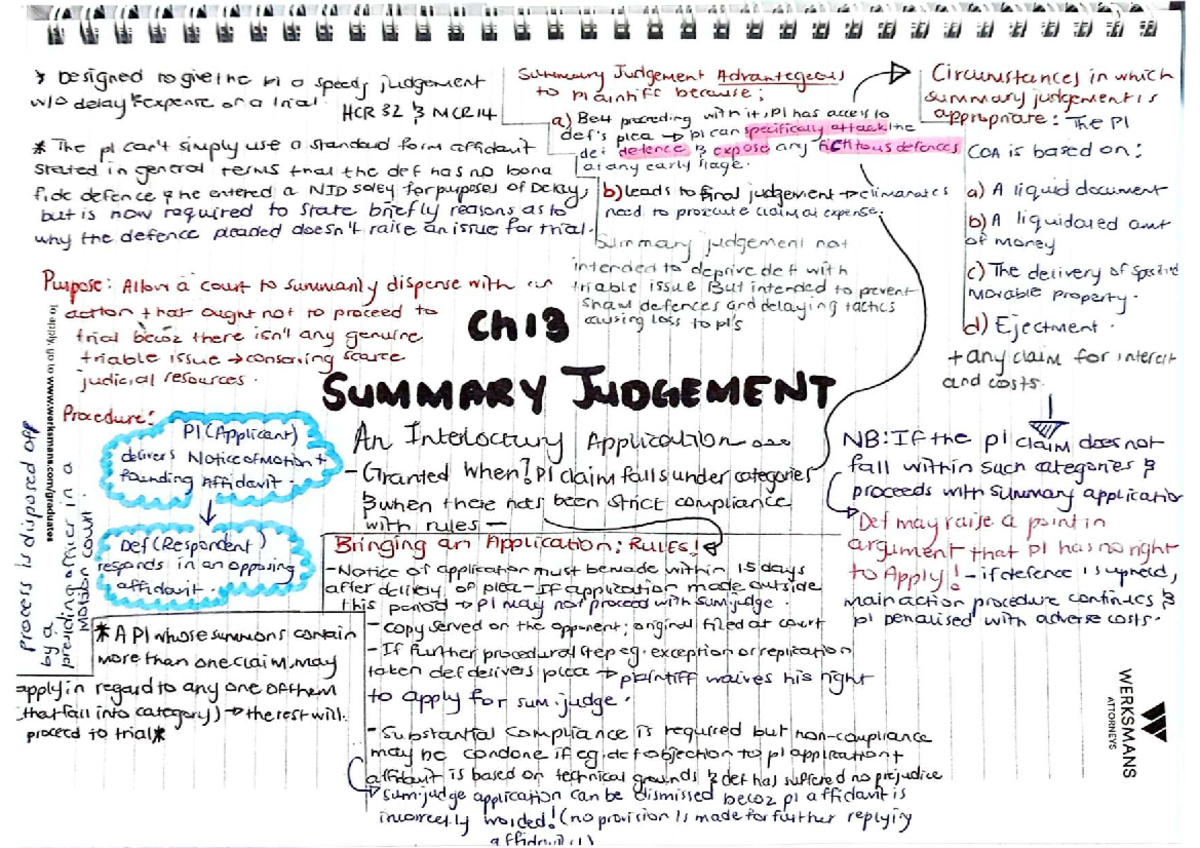 * Designed to give the pl a speedy judgement
w/o delay & expense of a trial.
HCR 32 & MCR 14
* The pl can't simply use a standard form affidavit
stated in general terms that the def has no bona
fide defence & he entered a NID soley for purposes of Delay,
but is now required to state briefly reasons as to
why the defence pleaded doesn't raise an issue for trial.
Summary Judgement Advantegeous
to Plaintiff because:
a) Be4 proceding with it, Pl has access to
def's plea → pl can specifically attack the
def defence & expose any fictitous defences
at any early stage.
b) leads to final judgement → elimanates
need to prosecute claim at expense.
Summary judgement not
intended to deprive def with
triable issue But intended to prevent
sham defences and delaying tactics
causing loss to pl's
Circumstances in which
summary judgement is
appropriate: The Pl
COA is based on:
a) A liquid document
b) A liquidated amt
of money
c) The delivery of specified
movable property.
d) Ejectment.
+ any claim for interest
and costs.
NB: If the pl claim does not
fall within such categories &
proceeds with summary application
Def may raise a point in
argument that Pl has no right
to Apply! - if defence is upheld,
main action procedure continues &
pl penalised with adverse costs.
Purpose: Allow a court to summarily dispense with an
action that ought not to proceed to
trial becoz there isn't any genuine
triable issue → conserving scarce
judicial resources.
Ch 13
SUMMARY JUDGEMENT
An Interloctury Application...
- Granted when? Pl claim falls under categories
& when there has been strict compliance
with rules —
Procedure:
Pl (Applicant)
delivers Notice of motion +
founding Affidavit.
Def (Respondent)
responds in an opposing
affidavit.
Process is disposed off
by a
presiding officer in a
Motion court.
To apply, go to www.werksmans.com/graduates
* A Pl whose summons contain
more than one claim, may
apply in regard to any one of them
(that fall into category) → the rest will
proceed to trial *
Bringing an Application: RULES!
- Notice of application must be made within 15 days
after delivery of plea - If application made outside
this period → Pl may not proceed with sum judge.
- copy served on the opponent; original filed at court
- If further procedural step eg. exception or replication
taken def delivers plea → plaintiff waives his right
to apply for sum. judge.
- Substantial compliance is required but non-compliance
may be condone if eg. def objection to pl application +
affidavit is based on technical grounds & def has suffered no prejudice
sum. judge application can be dismissed becoz pl affidavit is
incorrectly worded! (no provision is made for further replying
affidavit!)
WERKSMANS
ATTORNEYS